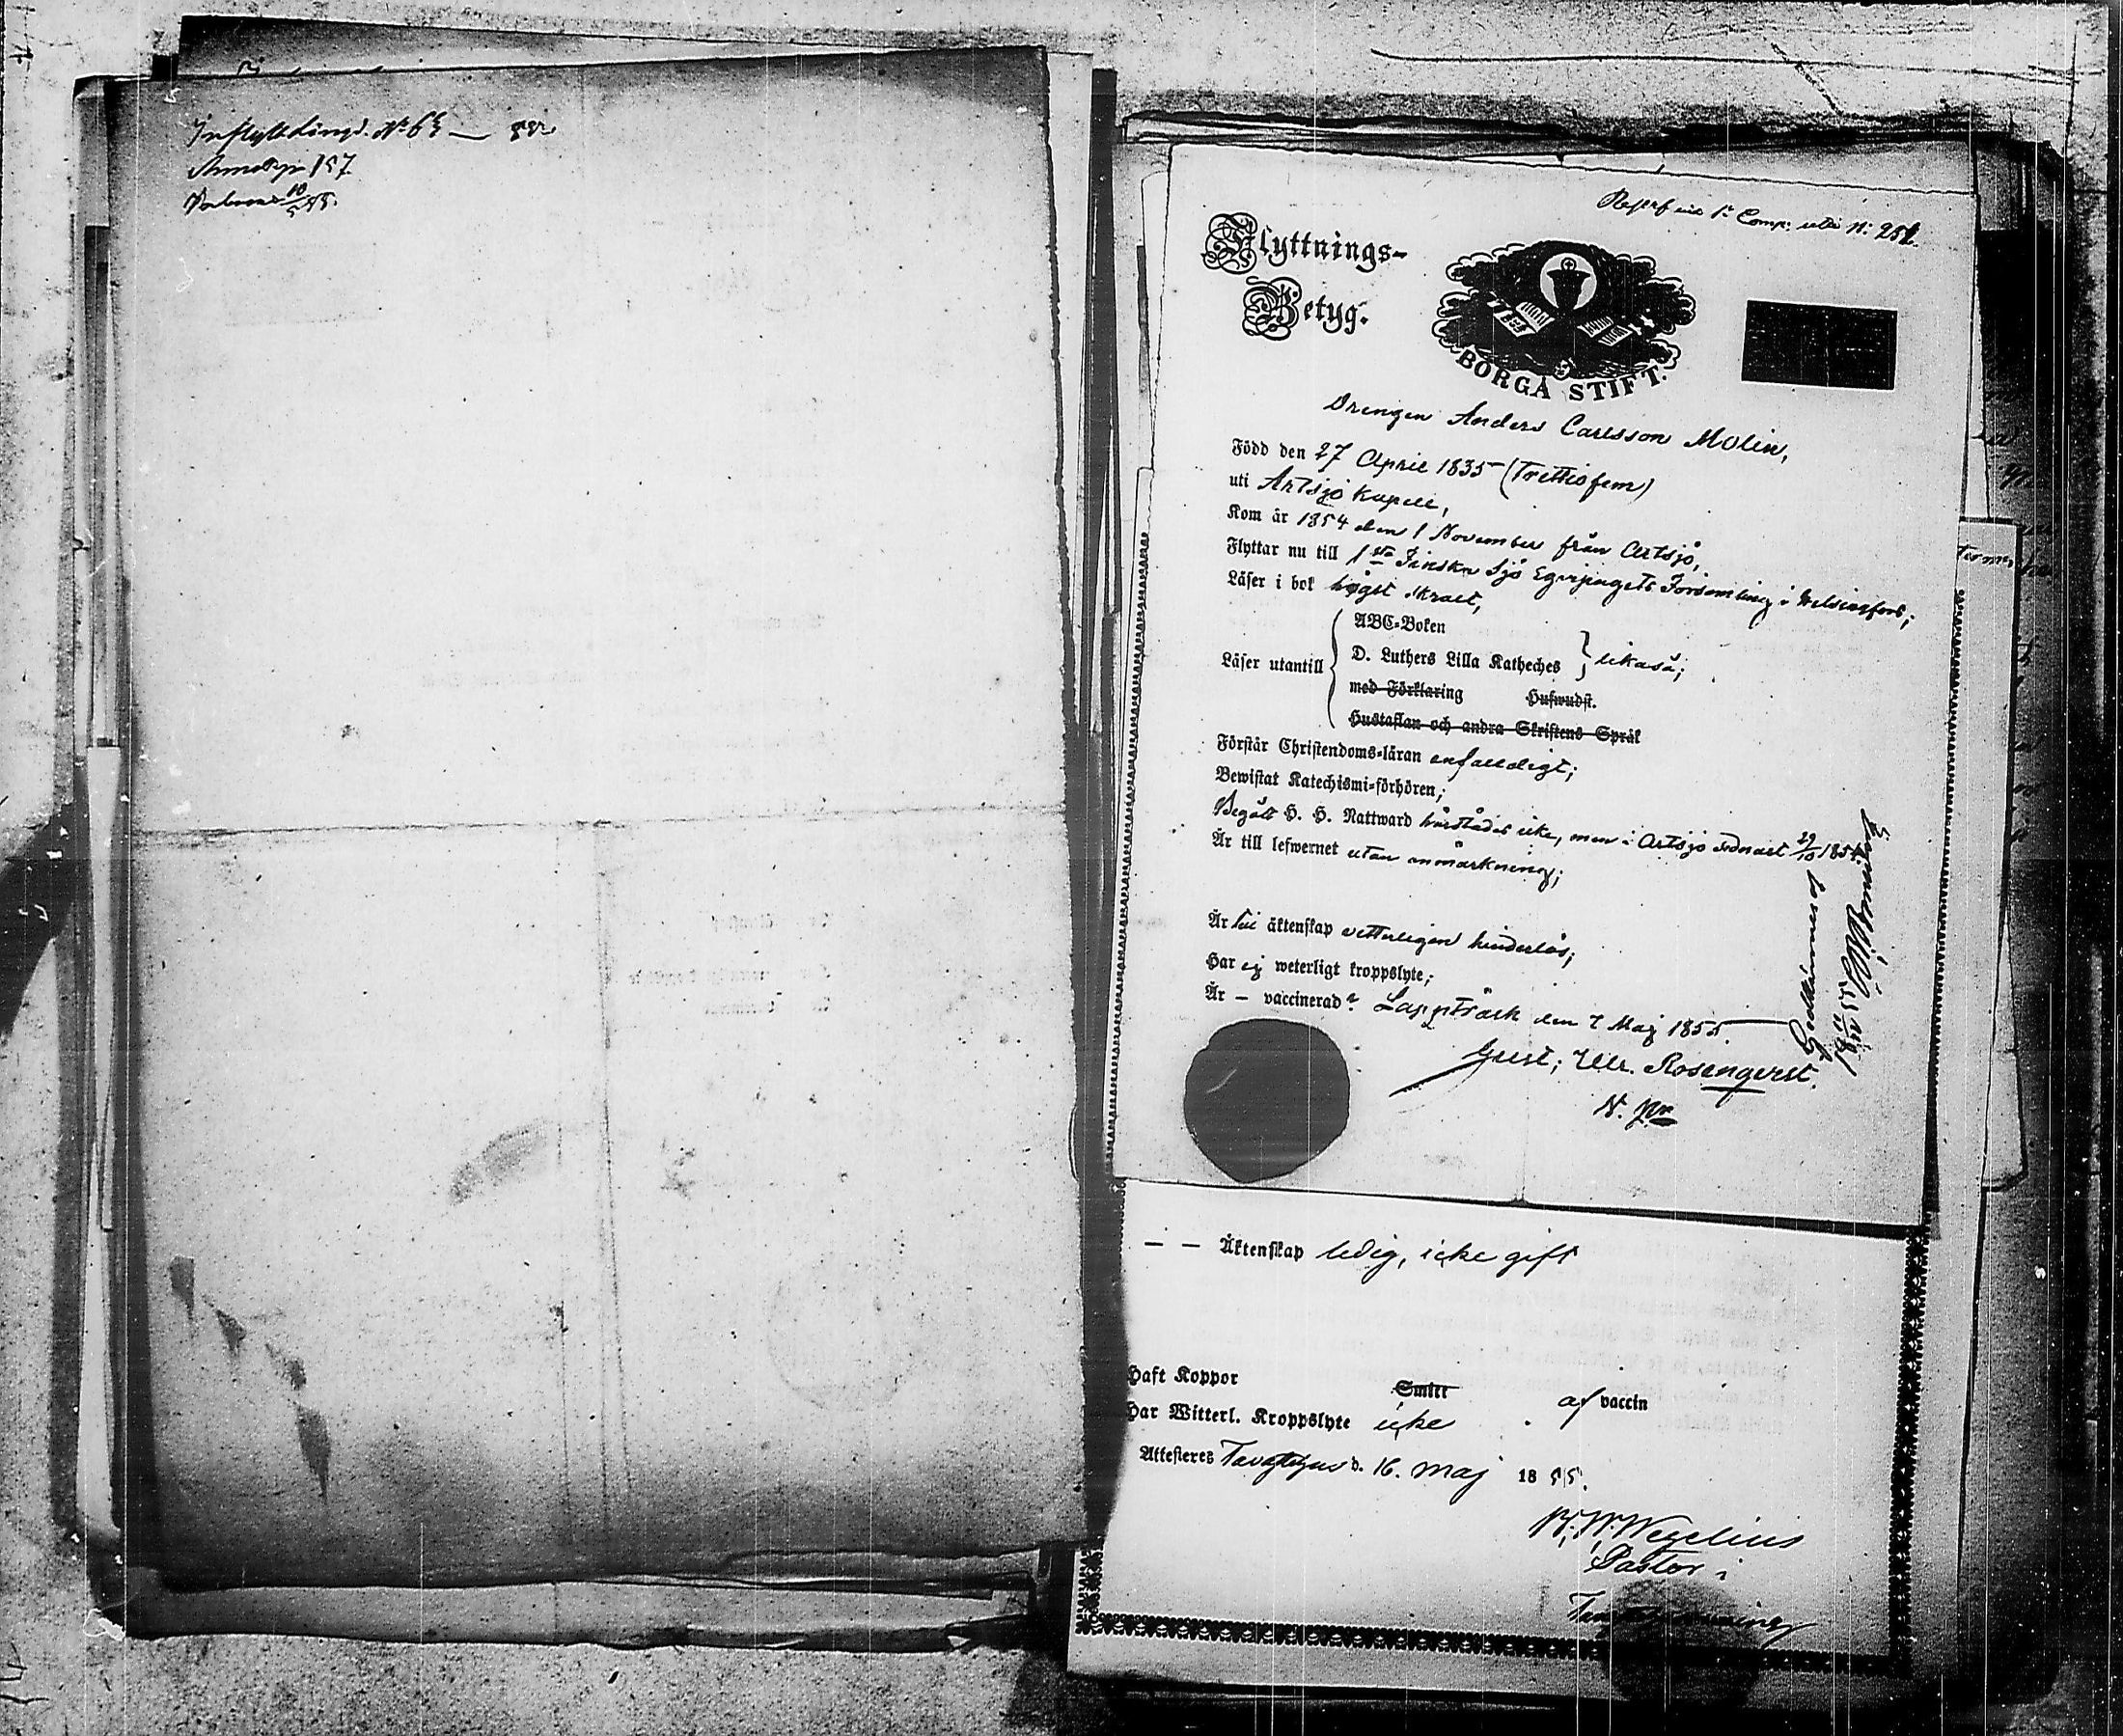 Inflyttningsl. No 63 —
157
10/5 55.
1a Comp: No: 252.
Flyttnings-
Betyg.
BORGÅ STIFT.
Drengen Anders Carlsson Molin,
Född den 27 April 1835 (Trettiofem)
uti Artsjö Kapell,
Kom år 1854 den 1 November från Artsjö,
Flyttar nu till 1sta Finska Sjö Eqvipagets Församling i Helsingfors;
Läser i bok högst skralt,
Läser utantill
ABC-Boken
D. Luthers Lilla Katheches } likaså;
med Förklaring Hufwudst.
Hustaflan och andra Skriftens Språk
Förstår Christendoms-läran enfaldigt;
Bewistat Katechismi-förhören;
Begått H. H. Nattward härstädes icke, men i Artsjö sednast 29/10 1854.
Är till lefwernet utan anmärkning;
Är till äktenskap vetterligen hinderlös;
Har ej weterligt kroppslyte;
Är – vaccinerad. Lappträsk den 7 Maj 1855.
Gust. Ulr. Rosenqvist.
— — Äktenskap ledig, icke gift
Haft Koppor Smitt af vaccin
Har Witterl. Kroppslyte icke
Attesteres Tavastehus d. 16. Maj 1855.
Wegelius
Pastor i